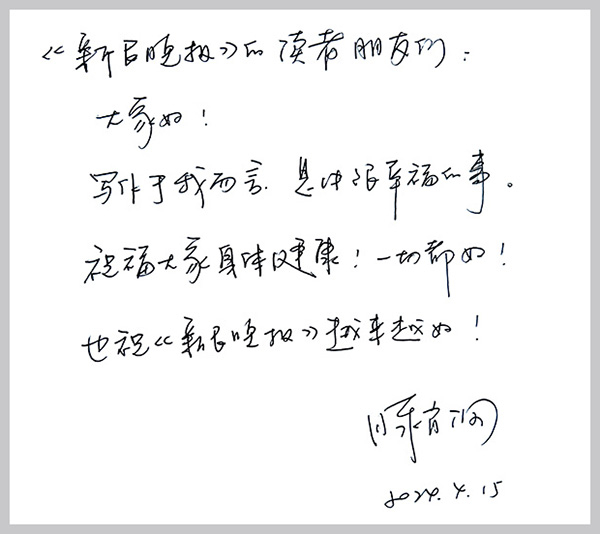 《新民晚报》的读者朋友们：
大家好！
写作于我而言，是件很幸福的事。
祝福大家身体健康！一切都好！
也祝《新民晚报》越来越好！
滕肖澜
2024.4.15